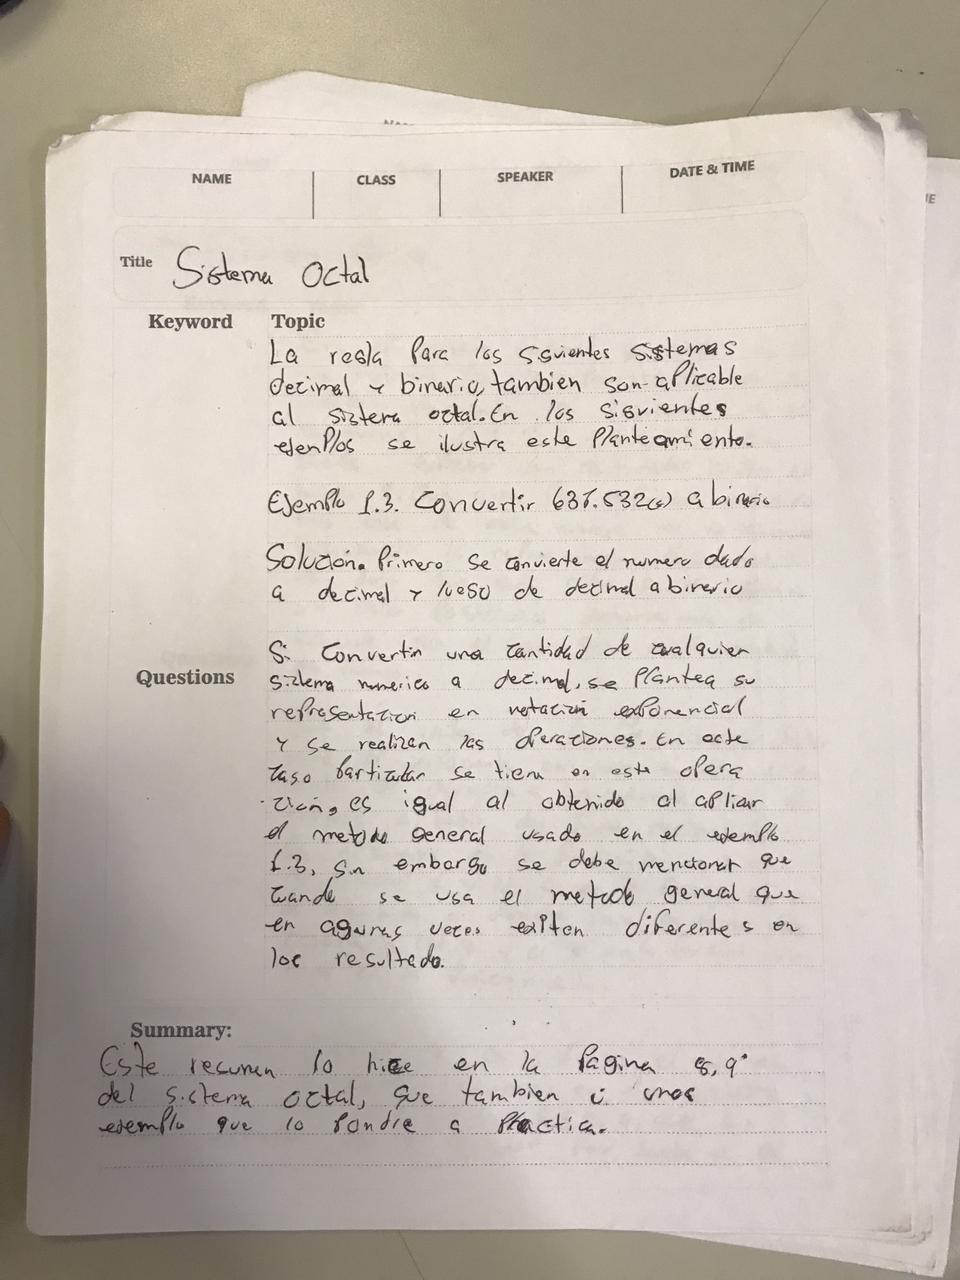 NAME CLASS SPEAKER DATE & TIME
Title Sistema Octal
Keyword Topic
La regla para los siguientes sistemas
decimal y binario, tambien son aplicable
al sistema octal. En los siguientes
ejemplos se ilustra este planteamiento.
Ejemplo 1.3. Convertir 637.532(8) a binario
Solución. Primero se convierte el numero dado
a decimal y luego de decimal a binario
Si convertin una cantidad de cualquier
Questions
sistema numerico a decimal, se plantea su
representacion en notación exponencial
y se realizan las operaciones. En este
caso particular se tiene en este opera
ción, es igual al obtenido al aplicar
el metodo general usado en el ejemplo
1.3, sin embargo se debe mencionar que
cuando se usa el metodo general que
en algunas veces existen diferentes en
los resultado.
Summary:
Este resumen lo hice en la pagina 8, 9
del sistema octal, que tambien unos
ejemplo que lo pondre a practica.